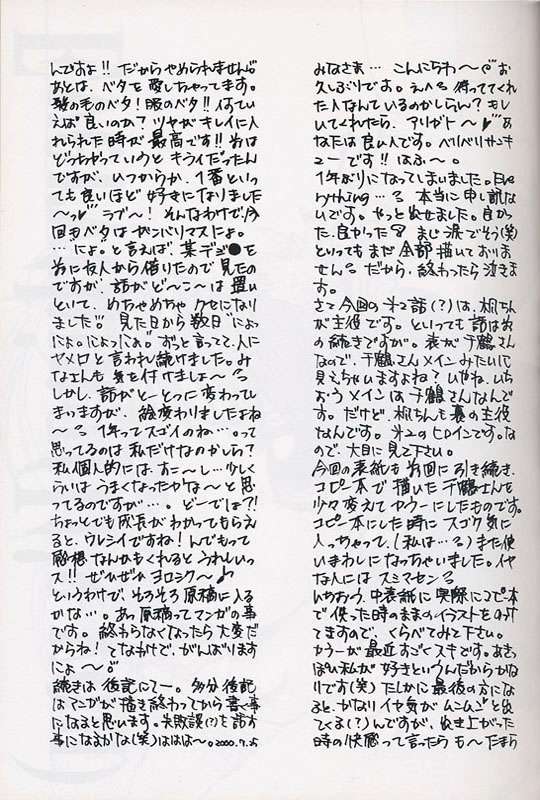 みなさま… こんにちわ〜 お
久しぶりです。えへへ 待っててくれ
た人なんているのかしらん? もし
いてくれたら、アリガト〜 あ
なたは良い人です。ベリベリサンキ
ューです!! はふ〜。
1年ぶりになってしまいました。Eve
rything…? 本当に申し訳な
いです。やっと出せました。良かっ
た、良かった まじ涙でそう(笑)
といってもまだ全部描いておりま
せん だから、終わったら泣きま
す。
さて今回の第2話(?)は、梓ちん
が主役です。といっても話は前
の続きですが。表が千鶴さん
なので、千鶴さんメインみたいに
見えちゃいますよね? いやね、いち
おうメインは千鶴さんなんで
す。だけど、梓ちんも裏の主役
なんです。第2のヒロインです。な
ので、大目に見て下さい。
今回の表紙も前回に引き続き、
コピー本で描いた千鶴さんを
少々変えてカラーにしたものです。
コピー本にした時にスゴク気に
入っちゃって、(私は…?)また使
いまわしになっちゃいました。イヤ
な人にはスミマセン
いちおう、中表紙に実際にコピー本
で使った時のままのイラストをのけ
てますので、くらべてみて下さい。
カラーが最近すごくスキです。あきっ
ぽい私が好きというんだからかな
りです(笑)たしかに最後の方にな
ると、かなりイヤ気がムンムンと出
てくる(?)んですが、出き上がった
時の快感って言ったらも〜たまら
んですよ!! だからやめられません
あとは、ベタを愛しちゃってます。
髪の毛のベタ!服のベタ!! 何てい
えば良いのか? ツヤがキレイに入
れられた時が最高です!! 前は
どっちかっていうとキライだったん
ですが、いつからか、1番といっ
ても良いほど好きになりました
〜 ラブ〜! そんなわけで、今
回もベタはガンバリマスにょ。
…"にょ"と言えば、某デジ●を
前に友人から借りたので見たの
ですが、話がど〜こ〜は置い
といて、めちゃめちゃクセになり
ました!! 見た日から数日"にょっ
にょ。にょっにょ。ずっと言ってて、人に
ヤメロと言われ続けました。み
なさんも気を付けましょ〜
しかし、話がとーとつに変わってし
まっますが、絵変わりましたよね
〜 1年ってスゴイのね…。って
思ってるのは私だけなのかしら?
私個人的には、すこ〜し…少しく
らいはうまくなったかな〜と思
ってるのですが…。どーでしょ?!
ちょっとでも成長がわかってもらえ
ると、ウレシイですね! んでもって
感想なんかもくれるとうれしいっ
ス!! ぜひぜひヨロシク〜♪
というわけで、そろそろ原稿に入る
かな…。あっ 原稿ってマンガの事
です。終わらなくなったら大変だ
からね! てなわけで、がんばります
にょ〜
続きは後記にてー。多分後記
はマンガが描き終わってから書く事
になると思います。失敗談(?)を話す
事になるかな(笑)ははは〜。2000.7.25